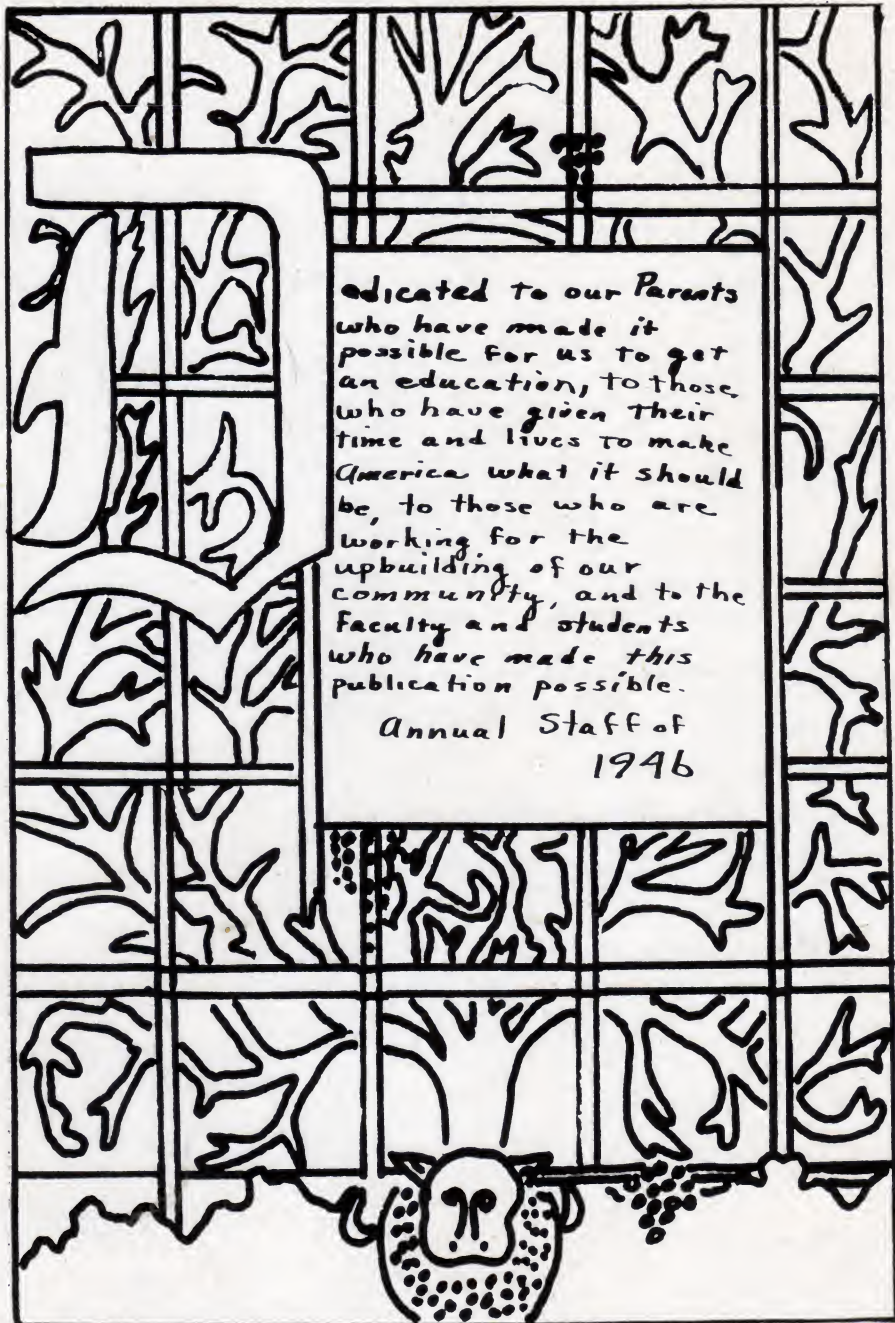 Dedicated to our Parents
who have made it
possible for us to get
an education, to those
who have given their
time and lives to make
America what it should
be, to those who are
working for the
upbuilding of our
community, and to the
Faculty and students
who have made this
publication possible.
Annual Staff of
1946